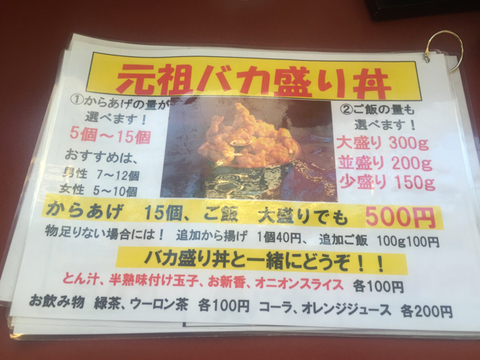 元祖バカ盛り丼
①からあげの量が
選べます！
5個〜15個
おすすめは、
男性 7〜12個
女性 5〜10個
②ご飯の量も
選べます！
大盛り 300g
並盛り 200g
少盛り 150g
からあげ 15個、ご飯 大盛りでも 500円
物足りない場合には！ 追加から揚げ 1個40円、 追加ご飯 100g100円
バカ盛り丼と一緒にどうぞ！！
とん汁、半熟味付け玉子、お新香、オニオンスライス 各100円
お飲み物 緑茶、ウーロン茶 各100円 コーラ、オレンジジュース 各200円